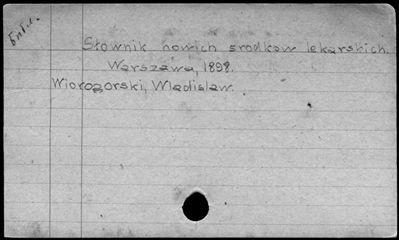 Słownik nowich srodkow lekarskich.
Warszawa, 1898.
Wiorogorski, Wladislaw.